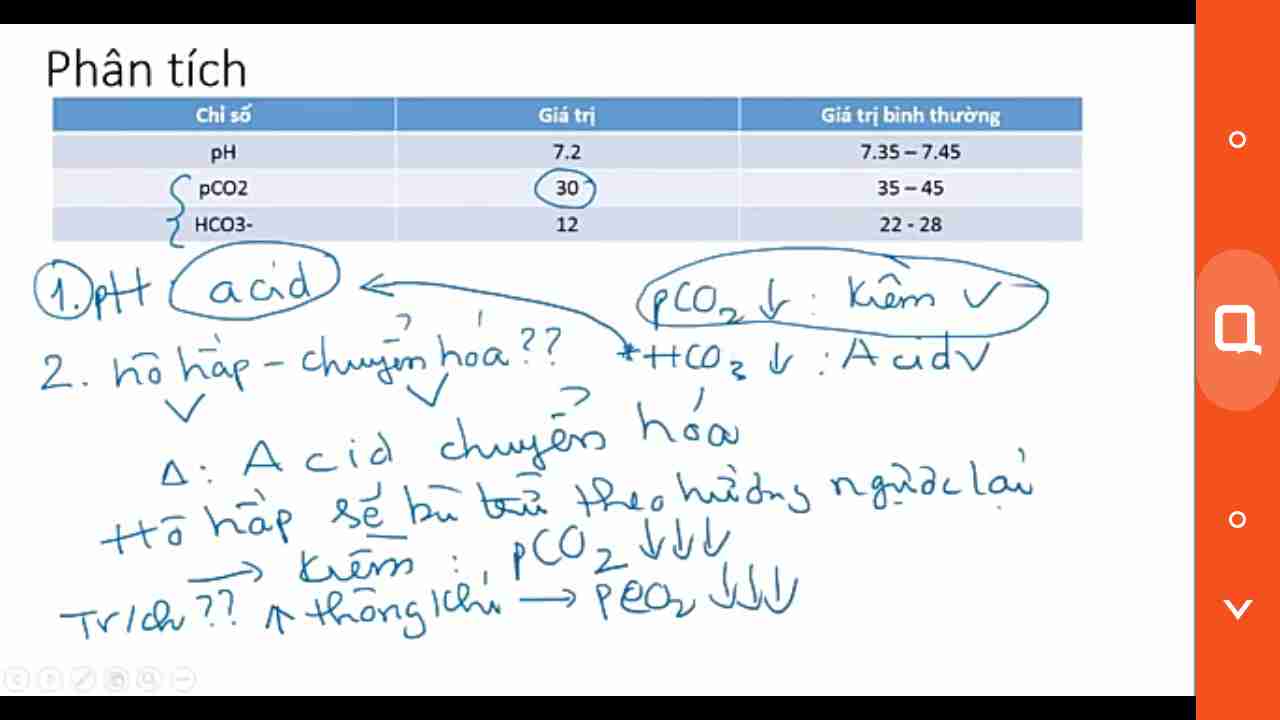 Phân tích
Chỉ số Giá trị Giá trị bình thường
pH 7.2 7.35 – 7.45
pCO2 30 35 – 45
HCO3- 12 22 - 28
1. pH acid
pCO2 ↓ : Kiềm ✓
2. hô hấp – chuyển hóa ??
*HCO3 ↓ : Acid ✓
Δ: Acid chuyển hóa
Hô hấp sẽ bù trừ theo hướng ngược lại
→ Kiềm : pCO2 ↓↓↓
↑ thông khí → pCO2 ↓↓↓